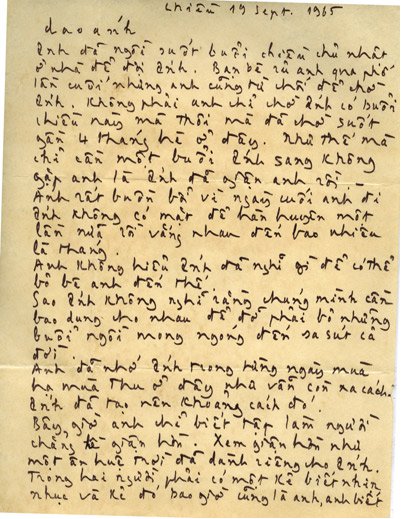 chiều 19 Sept. 1965
dao ánh
Anh đã ngồi suốt buổi chiều chủ nhật
ở nhà để đợi Ánh. Bạn bè rủ anh qua phố
lần cuối nhưng anh cũng từ chối để chờ
Ánh. Không phải anh chỉ chờ Ánh có buổi
chiều này mà thôi mà đã chờ suốt
gần 4 tháng hè ở đây. Như thế mà
chỉ cần một buổi Ánh sang không
gặp anh là Ánh đã giận anh rồi.
Anh rất buồn bã về ngày cuối anh đi
Ánh không có mặt để hàn huyên một
lần nữa rồi vắng nhau đến bao nhiêu
là tháng.
Anh không hiểu Ánh đã nghĩ gì để có thể
bỏ bê anh đến thế.
Sao Ánh không nghĩ rằng chúng mình cần
bao dung cho nhau để đỡ phải bỏ những
buổi ngồi mong ngóng đến sa sút cả
đời.
Anh đã nhớ Ánh trong từng ngày mùa
hạ mùa thu ở đây như vẫn còn xa cách.
Ánh đã tạo nên khoảng cách đó.
Bây giờ anh chỉ biết tập làm người
chẳng giận hờn. Xem giận hờn như
một ân huệ trời đã dành riêng cho Ánh.
Trong hai người, phải có một kẻ biết nhịn
nhục và kẻ đó bao giờ cũng là anh, anh biết